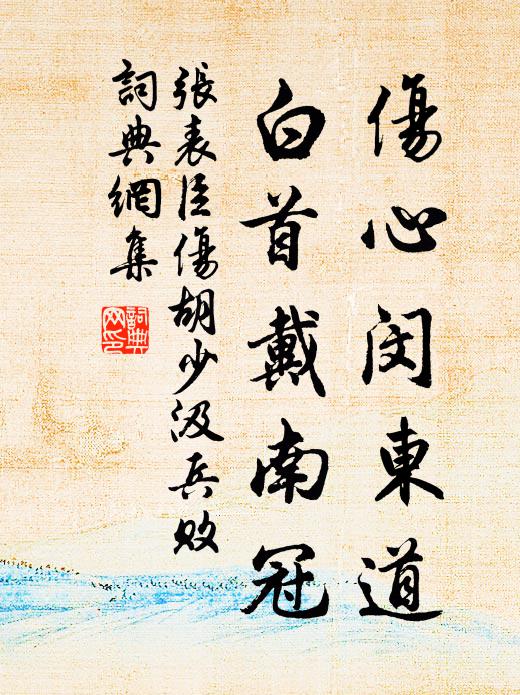 傷心閔東道
白首戴南冠
張表臣傷胡少汲兵敗
詞典網集
詞典網印